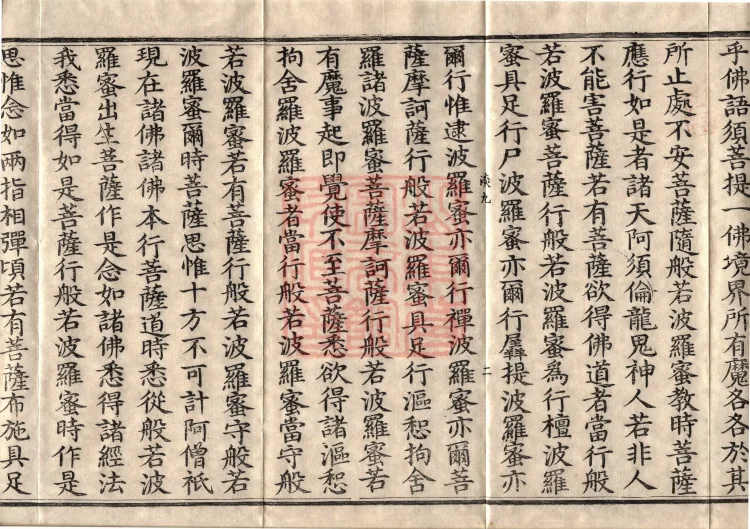 乎佛語須菩提一佛境界所有魔各各於其
所止處不安菩薩隨般若波羅蜜教時菩薩
應行如是者諸天阿須倫龍鬼神人若非人
不能害菩薩若有菩薩欲得佛道者當行般
若波羅蜜菩薩行般若波羅蜜為行檀波羅
蜜具足行尸波羅蜜亦爾行羼提波羅蜜亦
爾行惟逮波羅蜜亦爾行禪波羅蜜亦爾菩
薩摩訶薩行般若波羅蜜具足行漚惒拘舍
羅諸波羅蜜菩薩摩訶薩行般若波羅蜜若
有魔事起即覺使不至菩薩悉欲得諸漚惒
拘舍羅波羅蜜者當行般若波羅蜜當守般
若波羅蜜若有菩薩行般若波羅蜜守般若
波羅蜜爾時菩薩思惟十方不可計阿僧祇
現在諸佛諸佛本行菩薩道時悉從般若波
羅蜜出生菩薩作是念如諸佛悉得諸經法
我悉當得如是菩薩行般若波羅蜜時作是
思惟念如兩指相彈頃若有菩薩布施具足